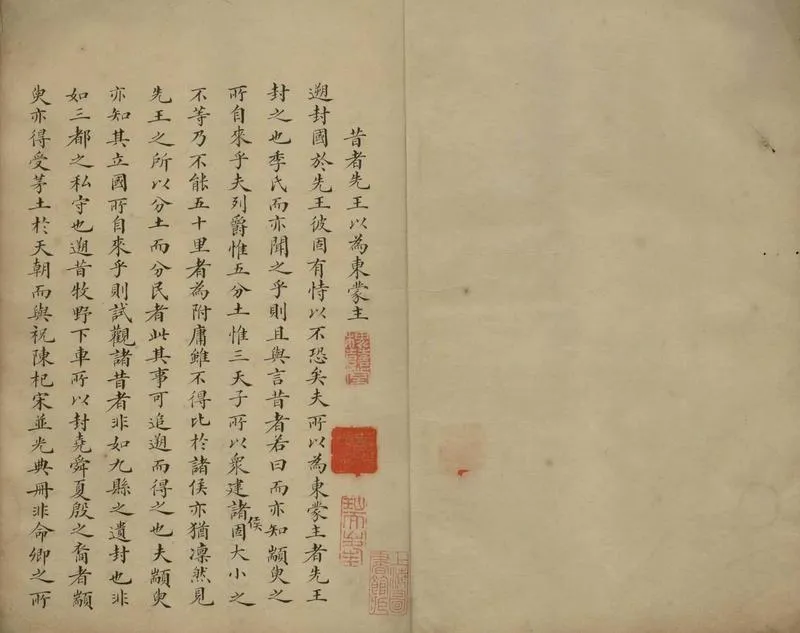 昔者先王以為東蒙主
遡封國於先王彼固有恃以不恐矣夫所以為東蒙主者先王
封之也季氏而亦聞之乎則且與言昔者若曰而亦知顓臾之
所自來乎夫列爵惟五分土惟三天子所以眾建諸侯固大小之
不等乃不能五十里者為附庸雖不得比於諸侯亦猶凜然見
先王之所以分土而分民者此其事可追遡而得之也夫顓臾
亦知其立國所自來乎則試觀諸昔者非如九縣之遺封也非
如三都之私守也遡昔牧野下車所以封堯舜夏殷之裔者顓
臾亦得受茅土於天朝而與祝陳杞宋並光典冊非命卿之所
上海圖
書館